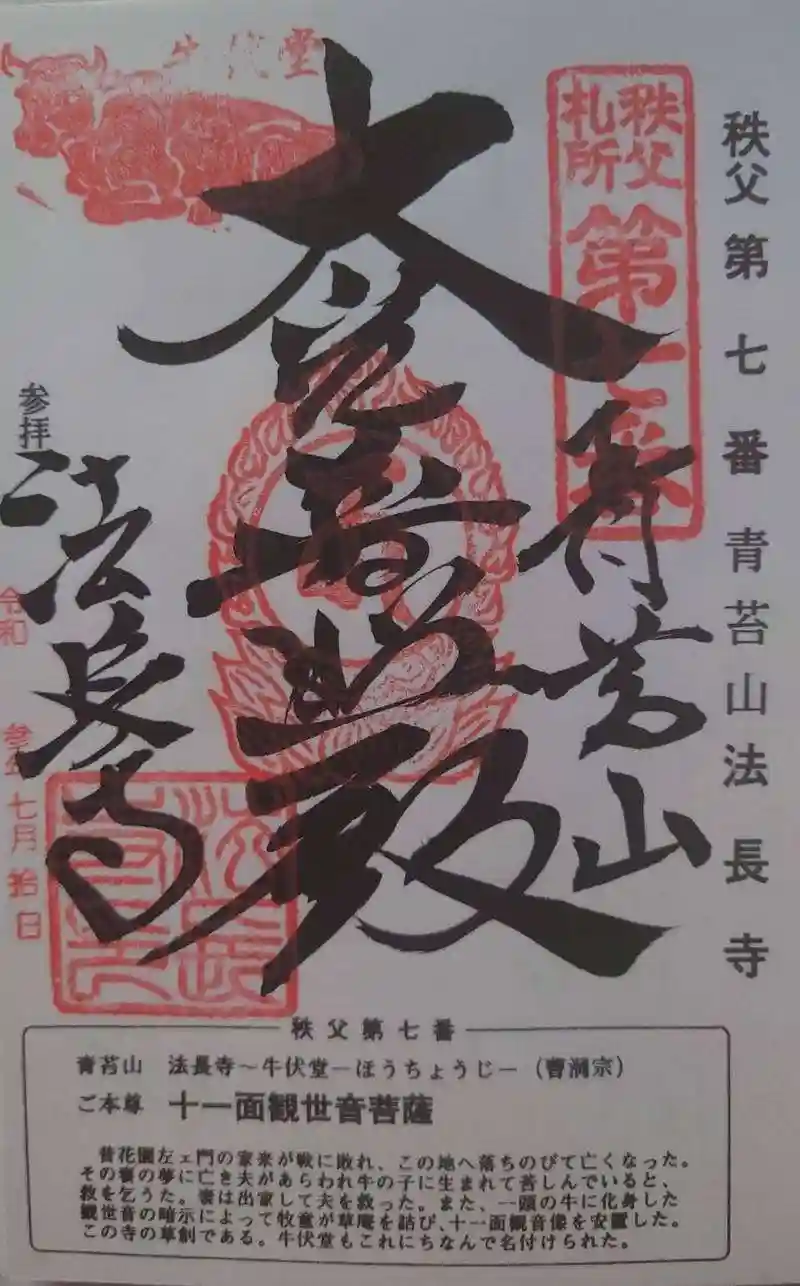 秩父第七番青苔山法長寺
秩父
札所
第七番
牛伏堂
青苔山
大慈大悲殿
参拝
法長寺
令和 参年七月拾日
秩父第七番
青苔山 法長寺~牛伏堂-ほうちょうじ-(曹洞宗)
ご本尊 十一面観世音菩薩
昔花園左ェ門の家来が戦に敗れ、この地へ落ちのびて亡くなった。
その妻の夢に亡き夫があらわれ牛の子に生まれて苦しんでいると、
救を乞うた。妻は出家して夫を救った。また、一頭の牛に化身した
観世音の暗示によって牧童が草庵を結び、十一面観音像を安置した。
この寺の草創である。牛伏堂もこれにちなんで名付けられた。